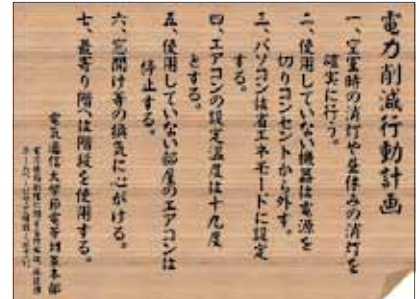 電力削減行動計画
一、空室時の消灯や昼休みの消灯を
確実に行う。
二、使用していない機器は電源を
切りコンセントから外す。
三、パソコンは省エネモードに設定
する。
四、エアコンの設定温度は十九度
とする。
五、使用していない部屋のエアコンは
停止する。
六、窓開け等の換気に心がける。
七、最寄り階へは階段を使用する。
電気通信大学節電等対策本部